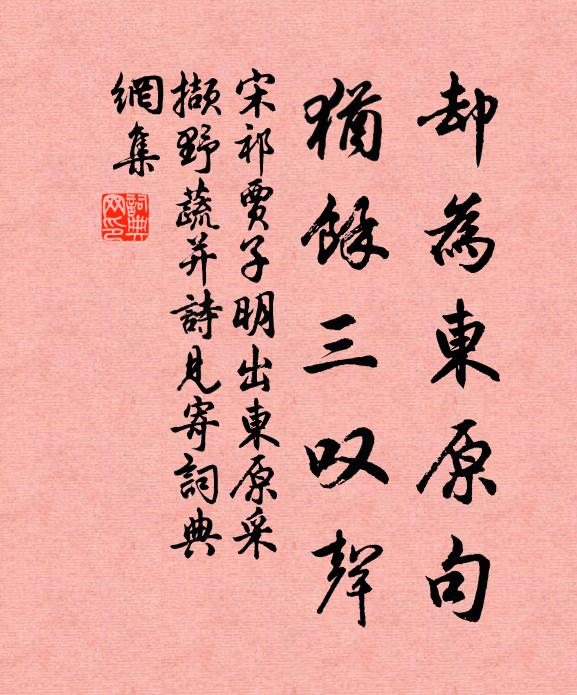 却為東原句
猶餘三叹聲
宋祁賈子明出東原采
擷野蔬并詩見寄詞典
網集
詞典
网印